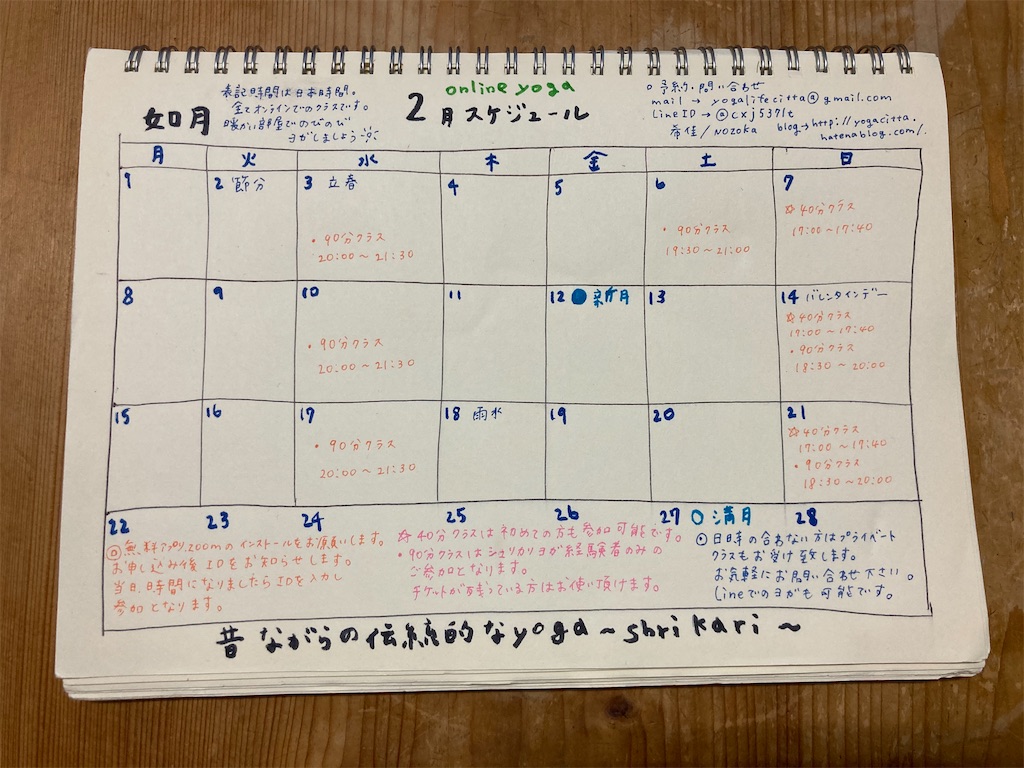 如月
表記時間は日本時間。
全てオンラインでのクラスです。
暖かい部屋でのびのび
ヨガしましょう
online yoga
2月スケジュール
○ 予約・問い合わせ
mail → yogalifecitta@gmail.com
Line ID → @cxj5371t
希佳/Nozoka blog→http://yogacitta.
hatenablog.com/.
月 火 水 木 金 土 日
1 2 節分 3 立春 4 5 6 7
・90分クラス
20:00〜21:30
・90分クラス
19:30〜21:00
☆40分クラス
17:00〜17:40
8 9 10 11 12 ●新月 13 14 バレンタインデー
・90分クラス
20:00〜21:30
☆40分クラス
17:00〜17:40
・90分クラス
18:30〜20:00
15 16 17 18 雨水 19 20 21
・90分クラス
20:00〜21:30
☆40分クラス
17:00〜17:40
・90分クラス
18:30〜20:00
22 23 24 25 26 27 ○満月 28
◎無料アプリzoomのインストールをお願いします。
お申し込み後IDをお知らせします。
当日、時間になりましたらIDを入力し
参加となります。
☆40分クラスは初めての方も参加可能です。
・90分クラスはシュリカリヨガ経験者のみの
ご参加となります。
チケットが残っている方はお使い頂けます。
⊙日時の合わない方はプライベート
クラスもお受け致します。
お気軽にお問い合わせ下さい。
Lineでのヨガも可能です。
昔ながらの伝統的なyoga〜shri kari〜